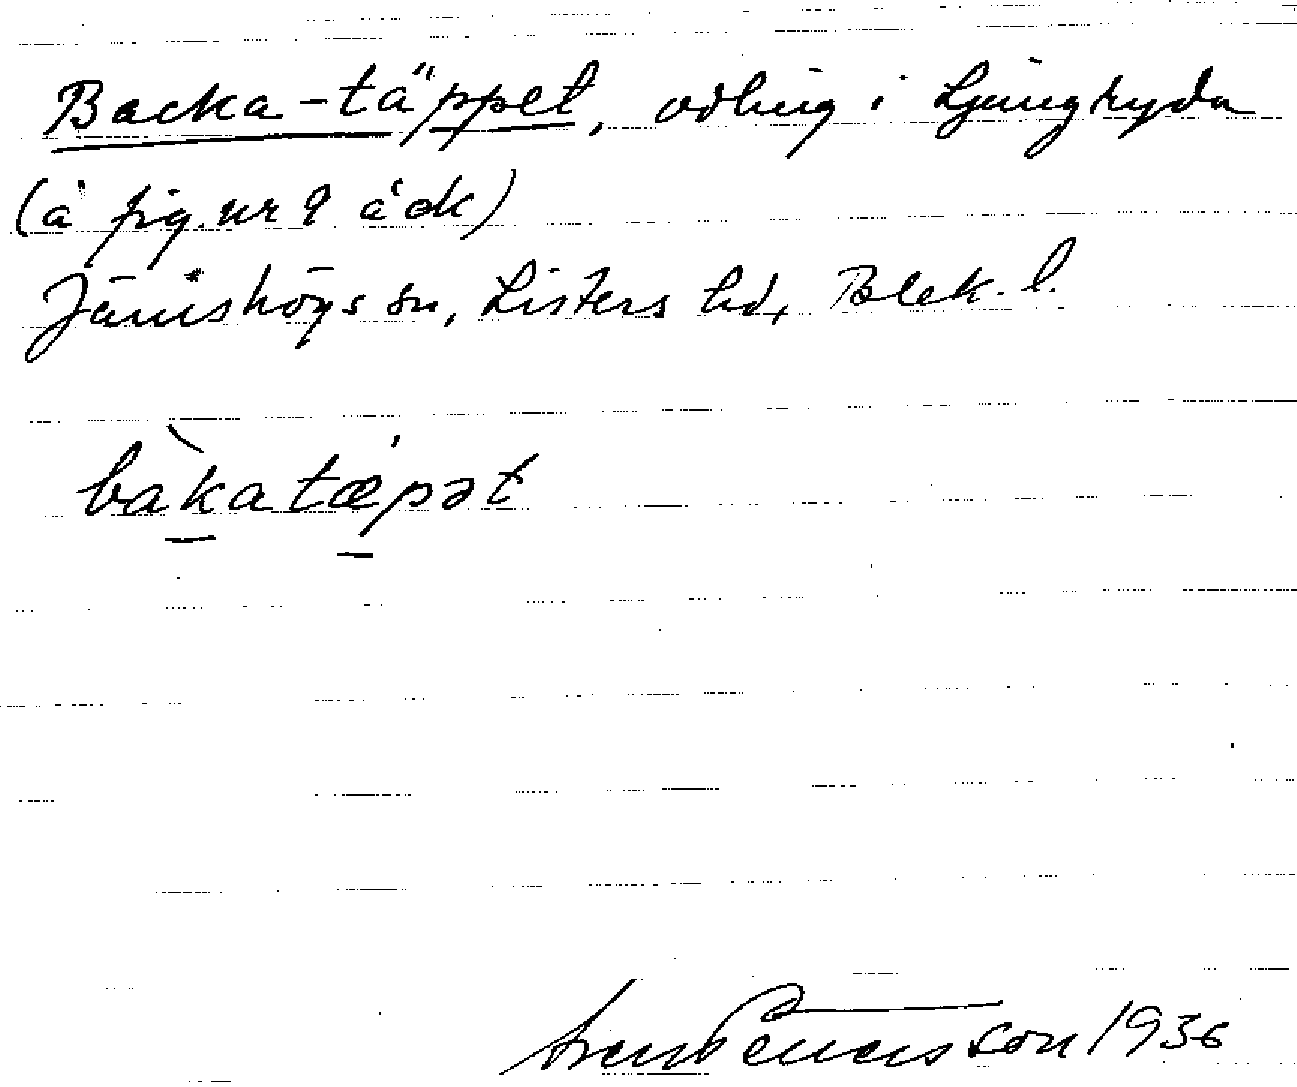 Backa-täppet, odling i Ljungryda
(å fig. nr 9 å ek)
Jämshögs sn, Listers hd, Blek. l.
bàkatæpət
Sven Benensson 1936